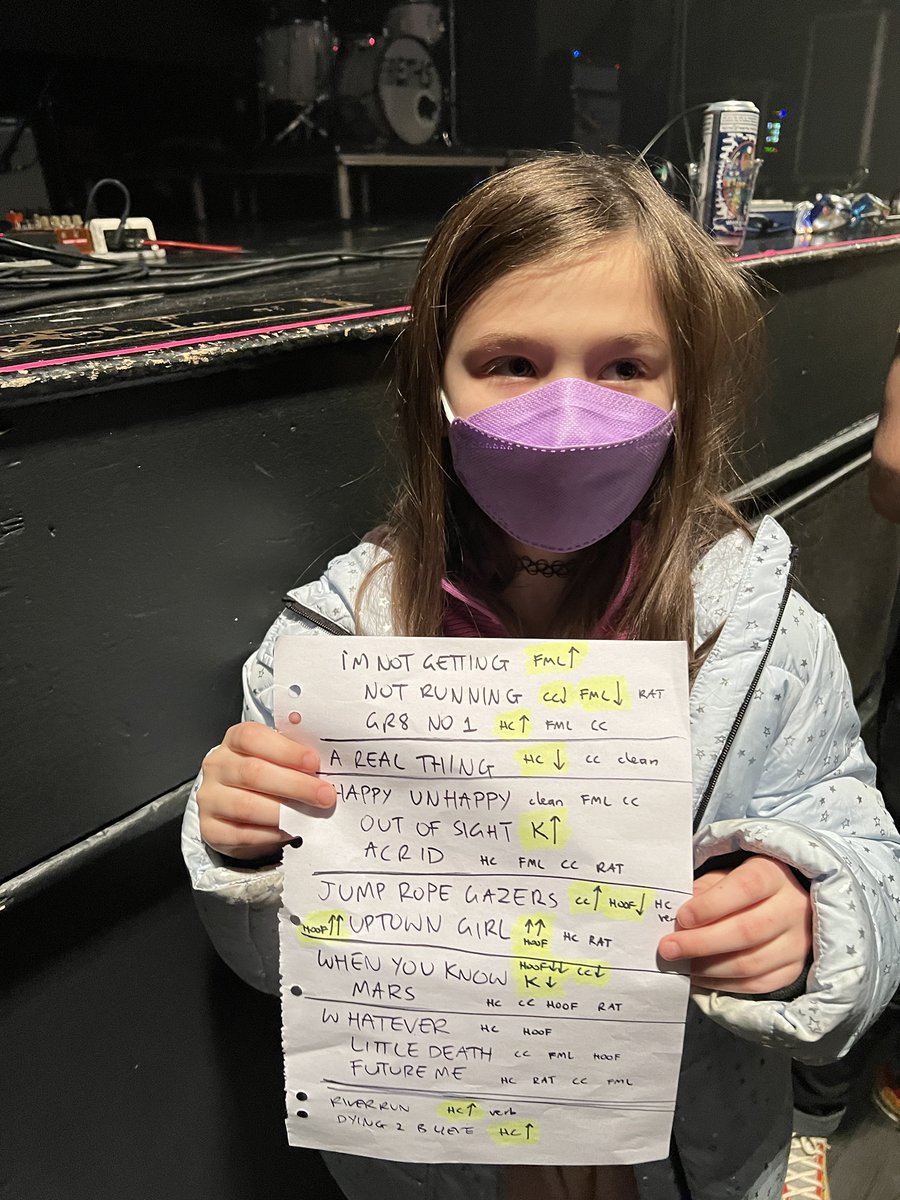 I'M NOT GETTING FML↑
NOT RUNNING CC↓ FML↓ RAT
GR8 NO 1 HC↑ FML CC
A REAL THING HC↓ CC clean
HAPPY UNHAPPY clean FML CC
OUT OF SIGHT K↑
ACRID HC FML CC RAT
JUMP ROPE GAZERS CC↑ HOOF↓ HC verb
HOOF↑↑ UPTOWN GIRL ↑↑ HOOF HC RAT
WHEN YOU KNOW HOOF↓↓ CC↓ K↓
MARS HC CC HOOF RAT
WHATEVER HC HOOF
LITTLE DEATH CC FML HOOF
FUTURE ME HC RAT CC FML
RIVER RUN HC↑ verb
DYING 2 B HC↑